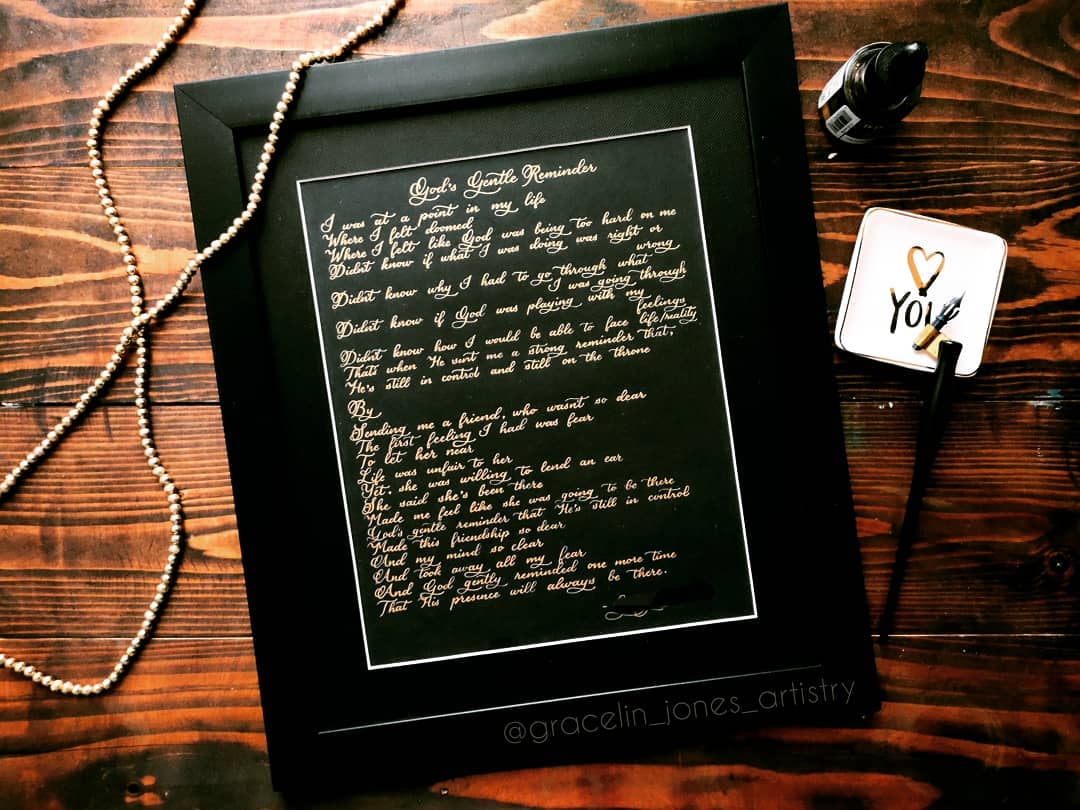 God's Gentle Reminder
I was at a point in my life
Where I felt doomed
Where I felt like God was being too hard on me
Didn't know if what I was doing was right or
wrong
Didn't know why I had to go through what
I was going through
Didn't know if God was playing with my
feelings
Didn't know how I would be able to face life/reality
Thats when He sent me a strong reminder that,
He's still in control and still on the throne
By
Sending me a friend, who wasn't so dear
The first feeling I had was fear
To let her near
Life was unfair to her
Yet, she was willing to lend an ear
She said she's been there
Made me feel like she was going to be there
God's gentle reminder that He's still in control
Made this friendship so dear
And my mind so clear
And took away all my fear
And God gently reminded one more time
That His presence will always be there.
YOU
@gracelin_jones_artistry